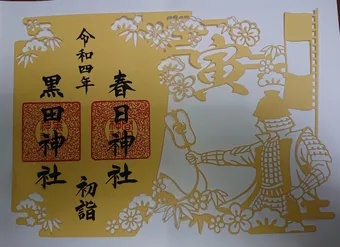 寅
令和四年
春日神社
黒田神社
初詣